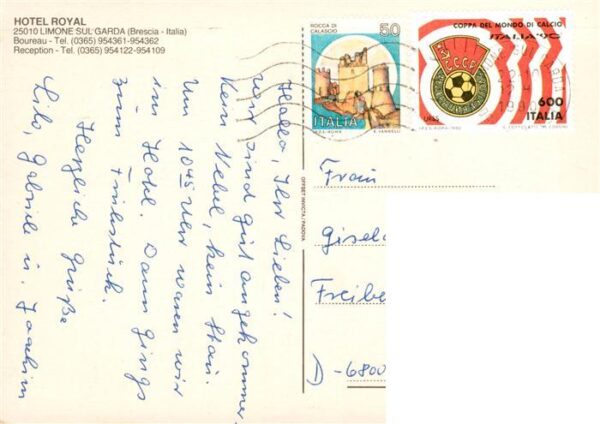 HOTEL ROYAL
25010 LIMONE SUL GARDA (Brescia - Italia)
Boureau - Tel. (0365) 954361-954362
Reception - Tel. (0365) 954122-954109
Hallo, Ihr Lieben!
Wir sind gut angekommen,
kein Nebel, kein Stau.
Um 10 45 Uhr waren wir
im Hotel. Dann gings
zum Frühstück.
Herzliche Grüße
Lilo, Gabriele u. Joachim
OFFSET INVICTA / PADOVA
ROCCA DI
CALASCIO
50
ITALIA
COPPA DEL MONDO DI CALCIO
ITALIA '90
CCCP
URSS
600
ITALIA
Frau
Gisel
Freibe
D-6800